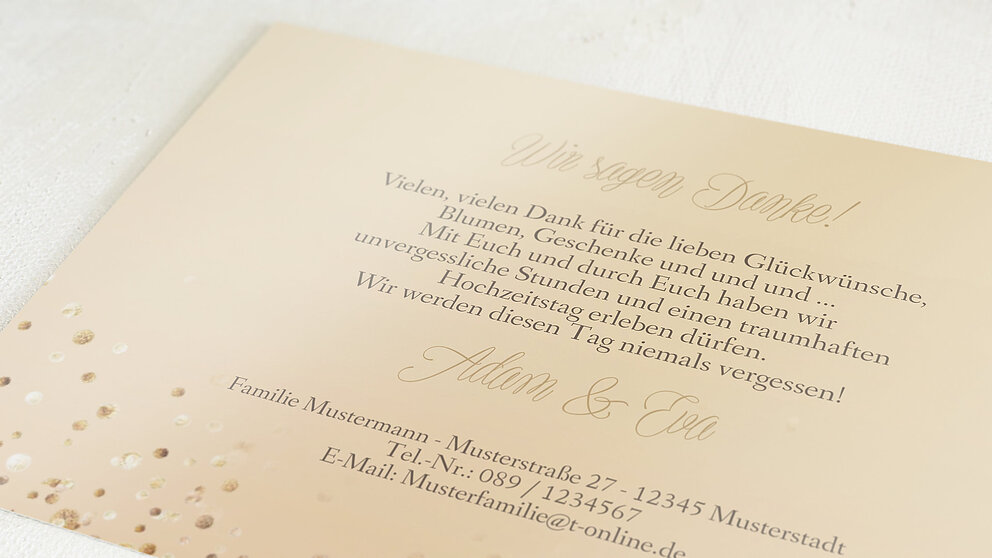 Wir sagen Danke!
Vielen, vielen Dank für die lieben Glückwünsche,
Blumen, Geschenke und und und ...
Mit Euch und durch Euch haben wir
unvergessliche Stunden und einen traumhaften
Hochzeitstag erleben dürfen.
Wir werden diesen Tag niemals vergessen!
Adam & Eva
Familie Mustermann - Musterstraße 27 - 12345 Musterstadt
Tel.-Nr.: 089 / 1234567
E-Mail: Musterfamilie@t-online.de